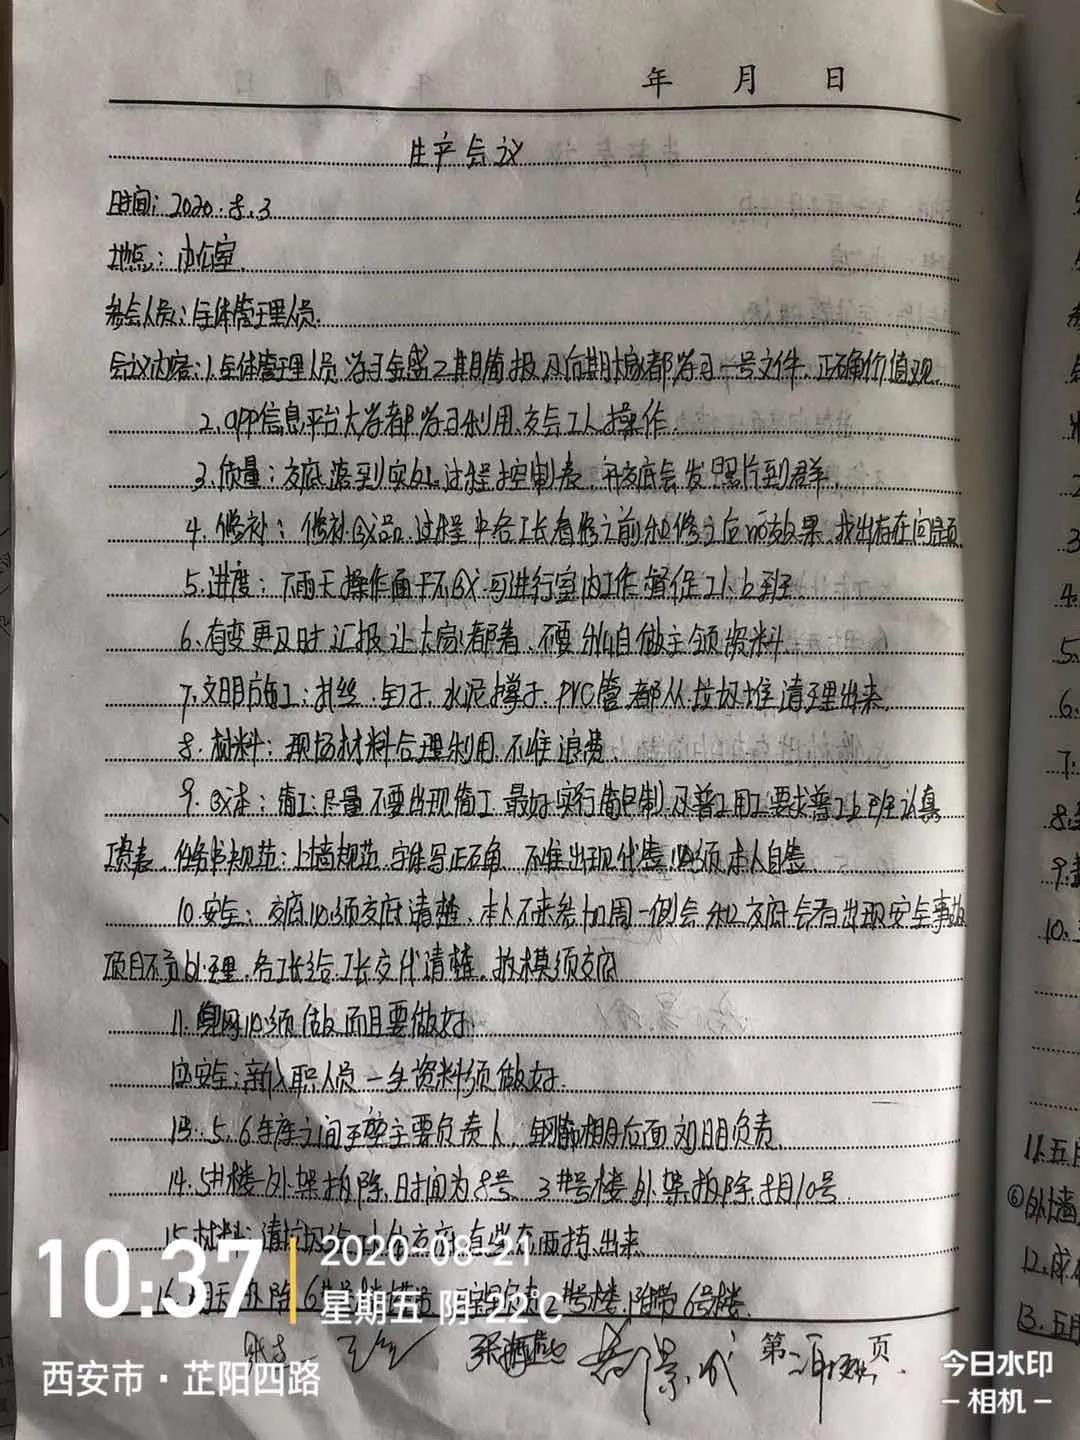 年 月 日
生产会议
时间：2020.8.3
地点：办公室
参会人员：全体管理人员.
会议内容：1.全体管理人员学习金盛2期简报及后期大家都学习一号文件.正确价值观.
2.app信息平台大家都学习利用.交会工人操作.
3.质量：交底落到实处.过程控制表.开交底会发照片到群.
4.修补：修补 过程中各工长看修之前和修之后的效果.找出存在问题
5.进度：下雨天操作面干不 可进行室内工作.督促工人上班.
6.有变更及时汇报让大家都看.不要私自做主领发料.
7.文明施工：扎丝.钉子.水泥撑子.PVC管都从垃圾堆清理出来.
8.材料：现场材料合理利用.不准浪费.
9. 尽量不要出现 工.最好实行 包制.及普工用工要求普工上班认真
负责.任务书规范：上墙规范.字体写正确.不准出现代签.必须本人自签
10.安全：交底必须交底清楚.本人不来参加周一例会和交底会若出现安全事故
项目不负处理.各工长给工长交代清楚.拆模须交底
11. 网必须做而且要做好.
12.安全：新入职人员一切资料须做好.
13.5.6号 之间 主要负责人. 后面刘明负责.
14.5#楼外架拆除时间为8号 3#号楼外架拆除8月10号
15.材料：清垃圾 交底.有些东西捡出来
16.明天 除6#号楼 2#号楼. 6号楼.
第 页
10:37
2020-08-21
星期五 阴 22℃
西安市·芷阳四路
今日水印
- 相机 -
3
4.
5.
6.
7.
8.
9.
10.
11.五月
⑥外墙
12.成
13.五月